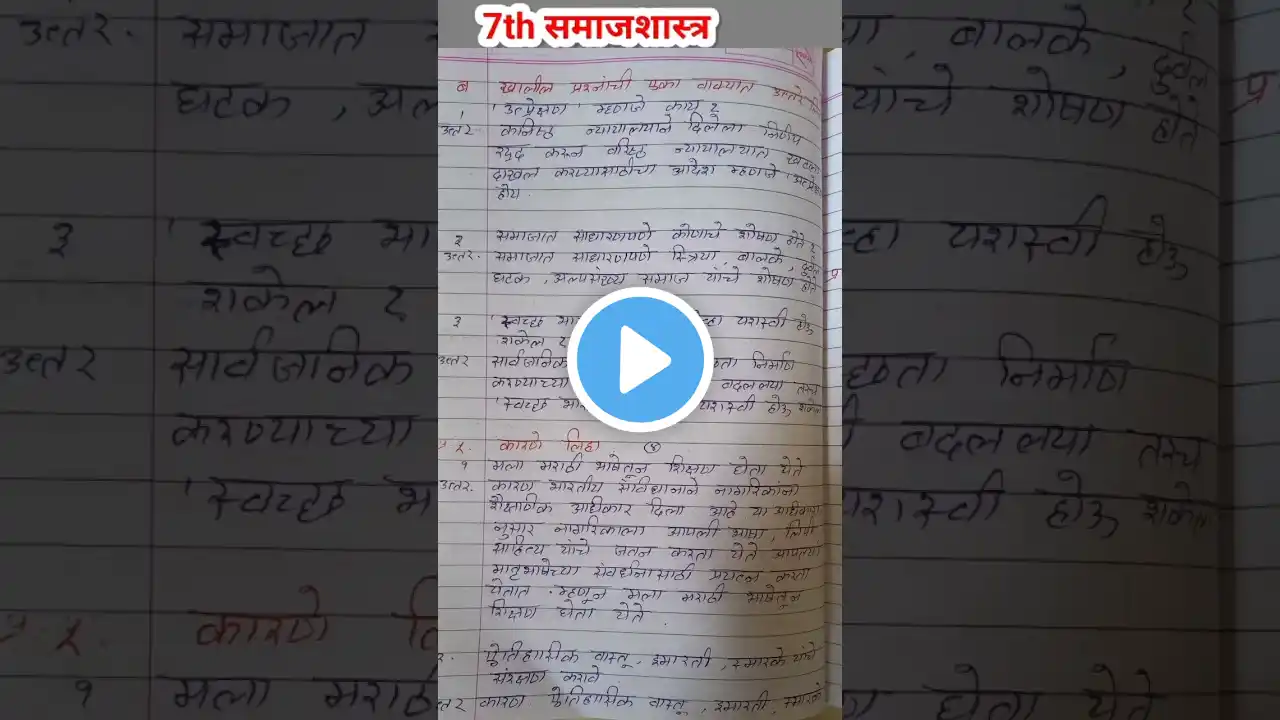 7th समाजशास्त्र
ब खालील प्रश्नांची एका वाक्यात उत्तरे
१ 'उत्प्रेक्षण' म्हणजे काय ?
उत्तर. कनिष्ठ न्यायालयाने दिलेला निर्णय
रद्द करून वरिष्ठ न्यायालयात
दाखल करण्यासाठीचा आदेश म्हणजे
होय.
२ समाजात साधारणपणे कोणाचे शोषण होते ?
उत्तर. समाजात साधारणपणे स्त्रिया, बालके, दुर्बल
घटक, अल्पसंख्य समाज यांचे शोषण होते
३ 'स्वच्छ यशस्वी होऊ
शकेल ?
उत्तर सार्वजनिक निर्माण
करण्याच्या बदललया तरच
'स्वच्छ यशस्वी होऊ शकेल
प्र २. कारणे लिहा
१ मला मराठी भाषेतून शिक्षण घेता येते
उत्तर. कारण भारतीय संविधानाने नागरिकांना
शैक्षणिक अधिकार दिला आहे या अधिकारा
नुसार नागरिकाला आपली भाषा, लिपी
साहित्य यांचे जतन करता येते आपल्या
मातृभाषेच्या संवर्धनासाठी प्रयत्न करता
येतात. म्हणून मला मराठी भाषेतून
शिक्षण घेता येते.
२. ऐतिहासिक वास्तू, इमारती, स्मारके यांचे
संरक्षण करावे
उत्तर कारण ऐतिहासिक वास्तू, इमारती, स्मारके